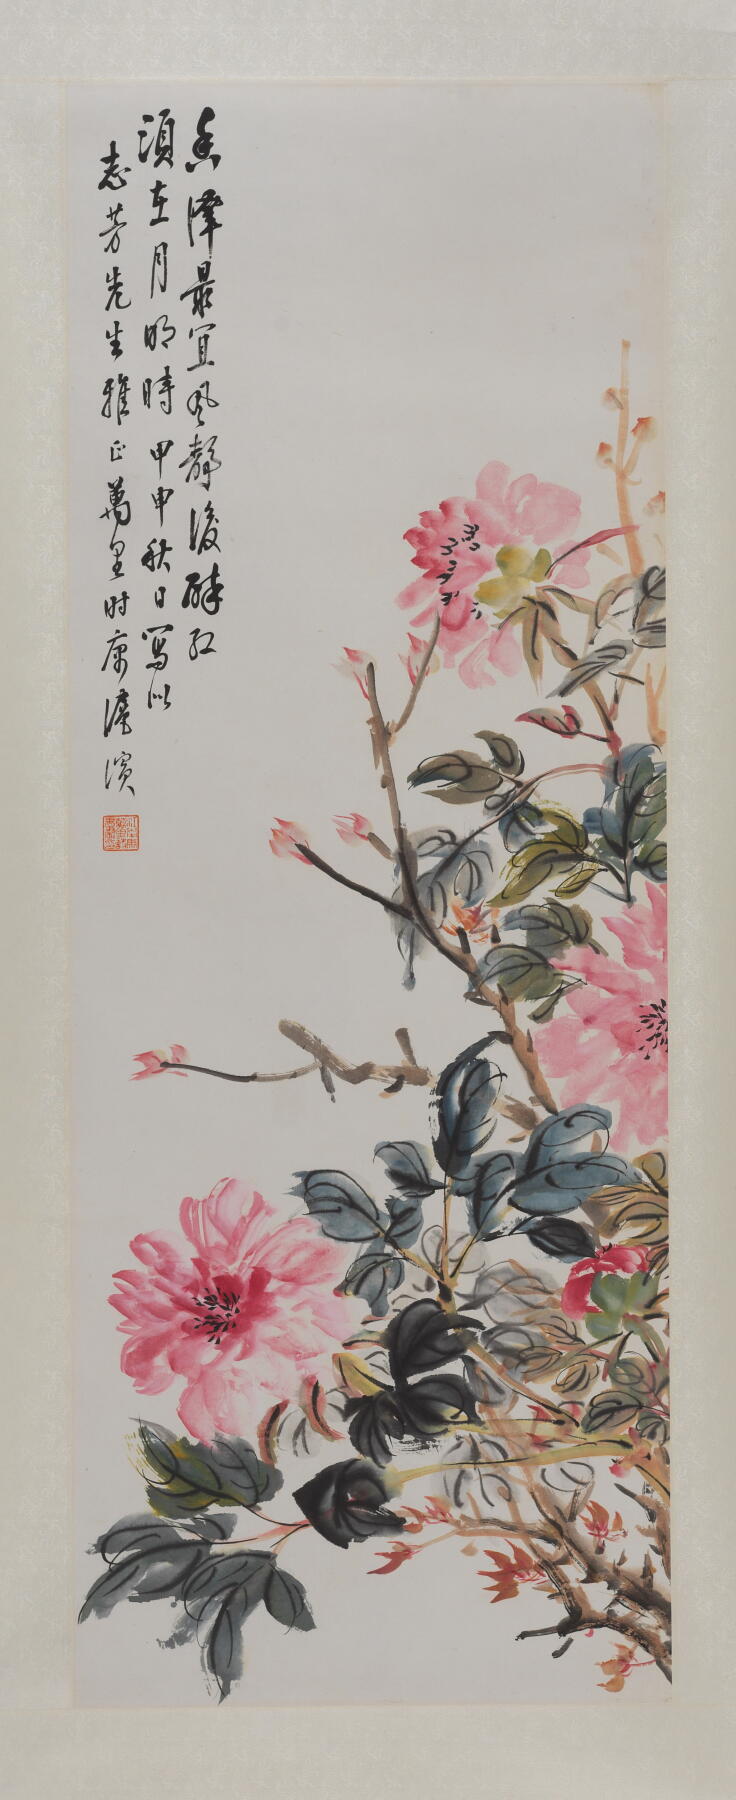 香澤最宜風靜後醉紅
須在月明時甲申秋日寫以
志芳先生雅正萬里時庽滬濱